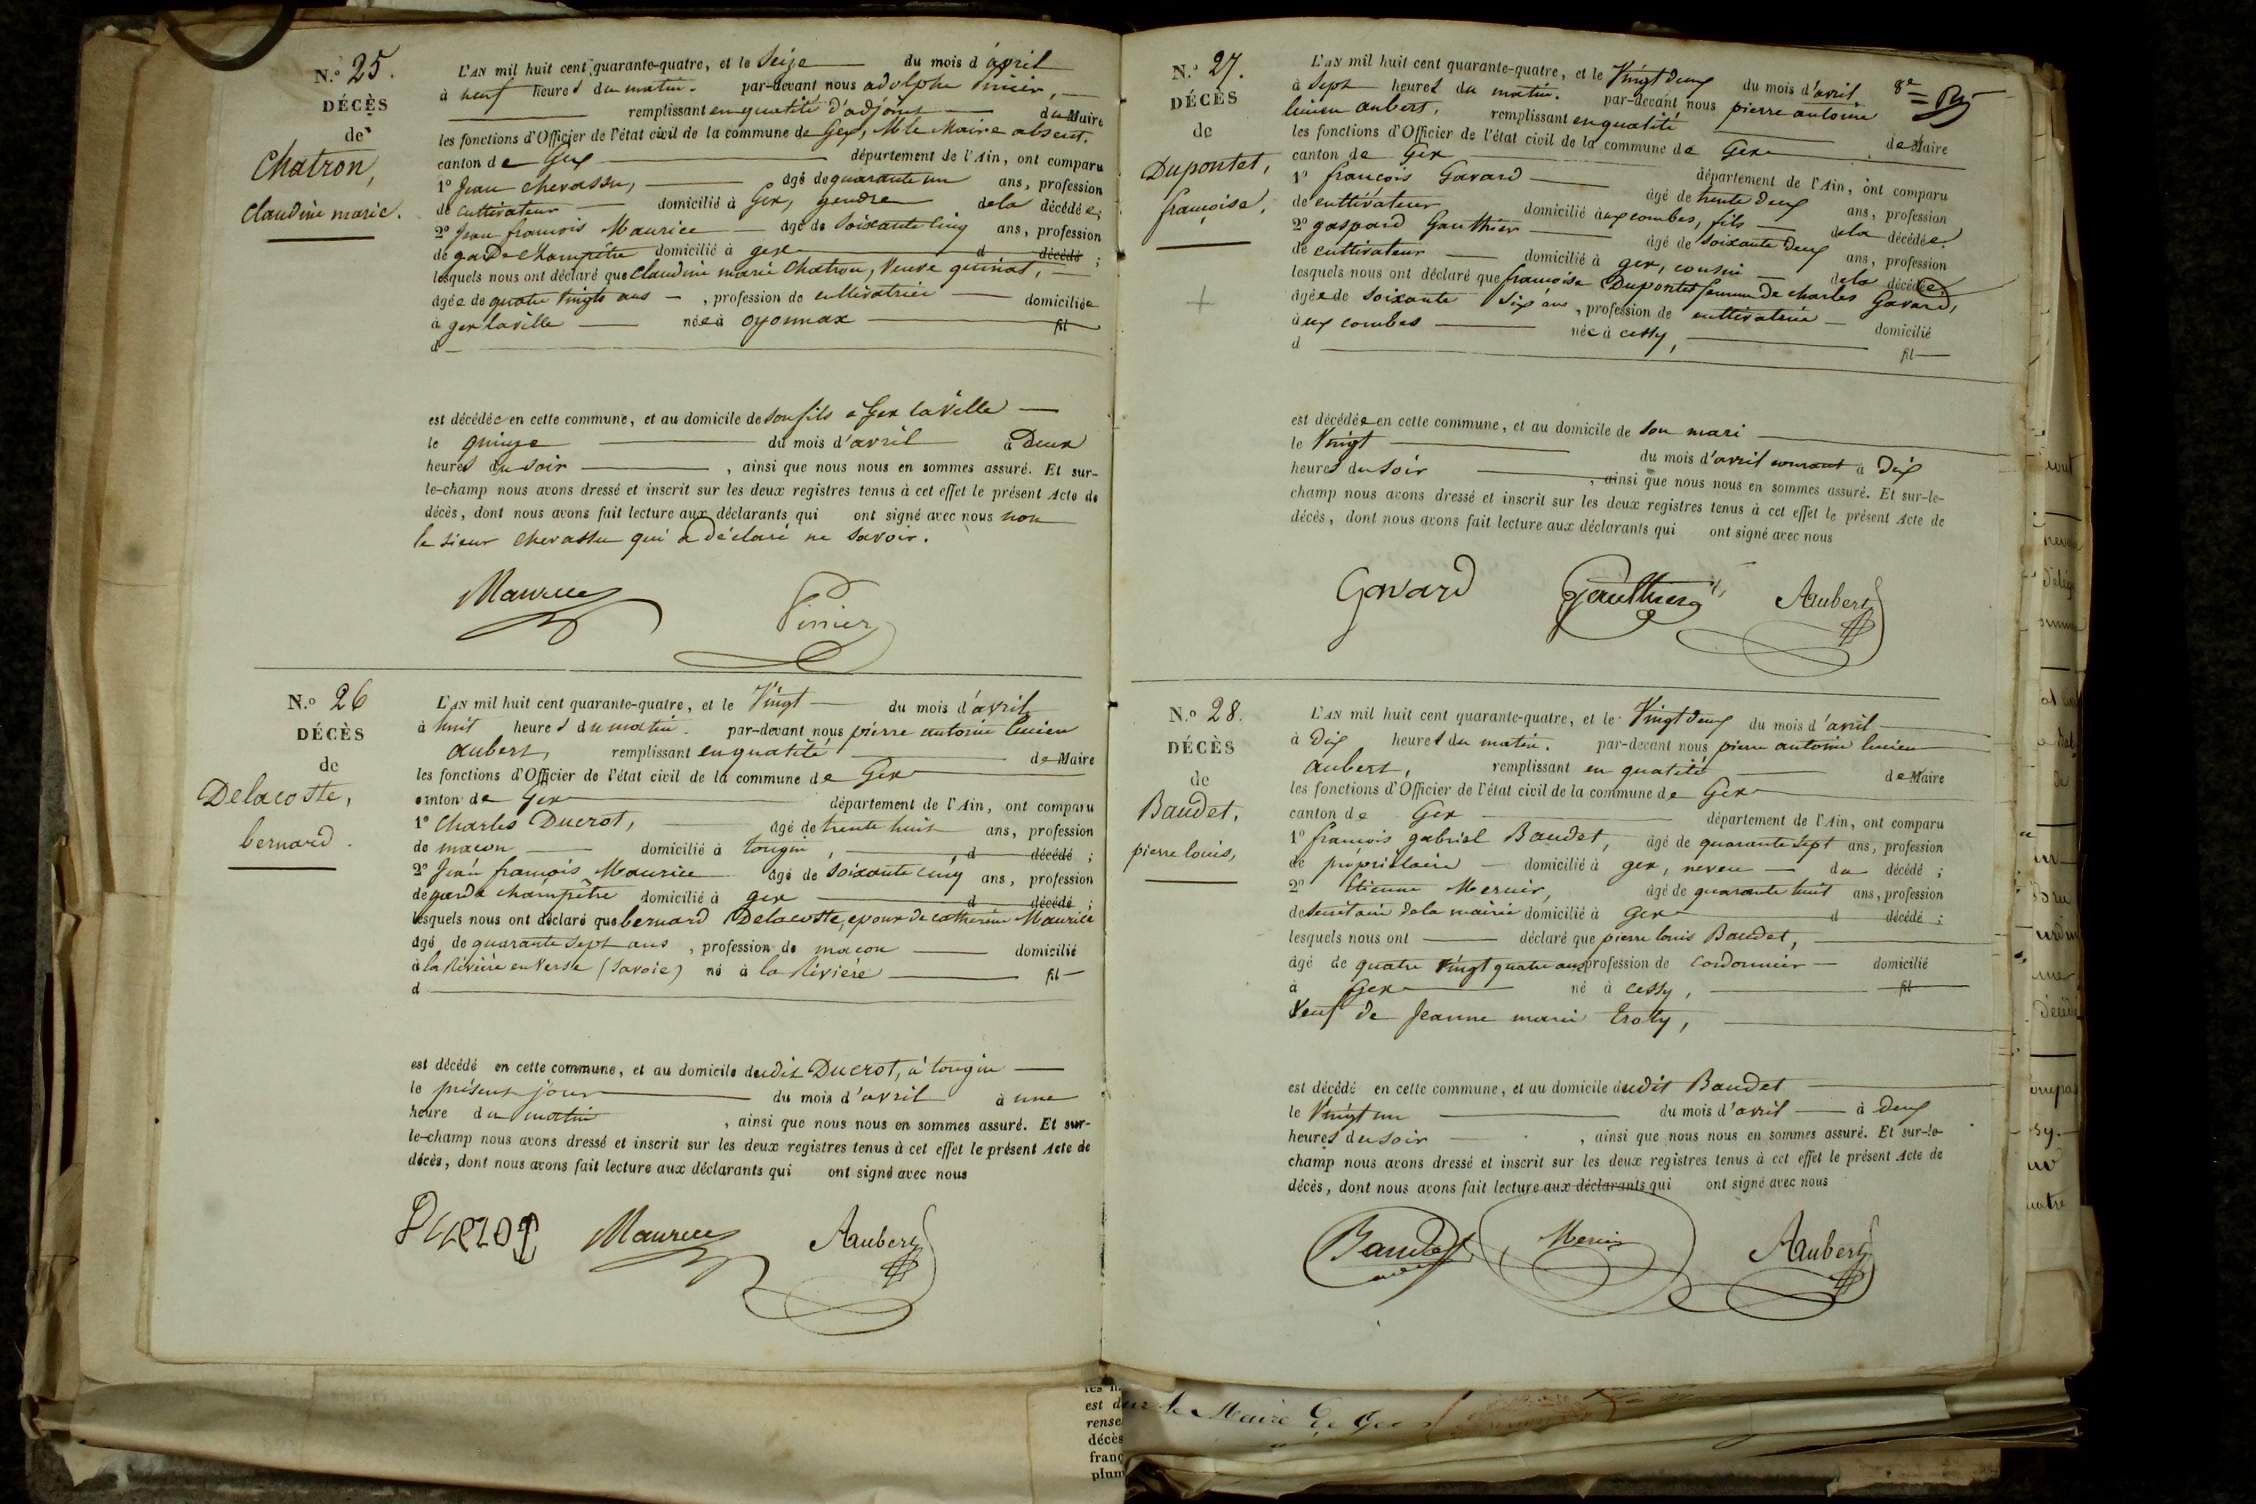 N.o 25.
DÉCÈS
de
Chatron,
Claudine marie.
L'AN mil huit cent quarante-quatre, et le Seize du mois d'avril
à neuf heures du matin. par-devant nous adolphe Pinier,
remplissant en qualité d'adjoint du Maire
les fonctions d'Officier de l'état civil de la commune de Gex, Mr le Maire absent.
canton de Gex département de l'Ain, ont comparu
1o Jean chevassu, âgé de quarante un ans, profession
de cultivateur domicilié à Gex, gendre de la décédée;
2o Jean françois Maurice âgé de soixante cinq ans, profession
de garde champêtre domicilié à gex d décédé ;
lesquels nous ont déclaré que Claudine marie Chatron, Veuve guinat,
âgée de quatre vingts ans , profession de cultivatrice domiciliée
à gex laville née à oyonnax fil
d
est décédée en cette commune, et au domicile de son fils à Gex laville
le quinze du mois d'avril à Deux
heures du soir , ainsi que nous nous en sommes assuré. Et sur-
le-champ nous avons dressé et inscrit sur les deux registres tenus à cet effet le présent Acte de
décès, dont nous avons fait lecture aux déclarants qui ont signé avec nous non
le sieur chevassu qui a déclaré ne savoir.
Maurice Pinier
N.o 26
DÉCÈS
de
Delacoste,
bernard.
L'AN mil huit cent quarante-quatre, et le Vingt du mois d'avril
à huit heures du matin. par-devant nous pierre antoine lucien
aubert, remplissant en qualité de Maire
les fonctions d'Officier de l'état civil de la commune de Gex
canton de Gex département de l'Ain, ont comparu
1o Charles Ducrot, âgé de trente huit ans, profession
de macon domicilié à tougin, d décédé ;
2o Jean françois Maurice âgé de soixante cinq ans, profession
de garde champêtre domicilié à gex d décédé ;
lesquels nous ont déclaré que bernard Delacoste, epoux de catherine Maurice
âgé de quarante sept ans , profession de macon domicilié
à la Rivière enverse (savoie) né à la Rivière fil
d
est décédé en cette commune, et au domicile dudit Ducrot, à tougin
le présent jour du mois d'avril à une
heure du matin , ainsi que nous nous en sommes assuré. Et sur-
le-champ nous avons dressé et inscrit sur les deux registres tenus à cet effet le présent Acte de
décès, dont nous avons fait lecture aux déclarants qui ont signé avec nous
Ducrot Maurice Aubert
N.o 27.
DÉCÈS
de
Dupontet,
françoise.
L'AN mil huit cent quarante-quatre, et le Vingt deux du mois d'avril 8e
à sept heures du matin. par-devant nous pierre antoine
lucien aubert, remplissant en qualité de Maire
les fonctions d'Officier de l'état civil de la commune de Gex
canton de Gex département de l'Ain, ont comparu
1o françois Gavard âgé de trente deux ans, profession
de cultivateur domicilié aux combes, fils de la décédée;
2o gaspard Gauthier âgé de soixante deux ans, profession
de cultivateur domicilié à gex, cousin de la décédée
lesquels nous ont déclaré que françoise Dupontet femme de charles Gavard,
âgée de soixante six ans , profession de cultivatrice domicilié
aux combes née à cessy, fil
d
est décédée en cette commune, et au domicile de son mari
le Vingt du mois d'avril courant à dix
heures du soir , ainsi que nous nous en sommes assuré. Et sur-le-
champ nous avons dressé et inscrit sur les deux registres tenus à cet effet le présent Acte de
décès, dont nous avons fait lecture aux déclarants qui ont signé avec nous
Gavard Gauthier Aubert
N.o 28.
DÉCÈS
de
Baudet,
pierre louis,
L'AN mil huit cent quarante-quatre, et le Vingt deux du mois d'avril
à dix heures du matin. par-devant nous pierre antoine lucien
aubert, remplissant en qualité de Maire
les fonctions d'Officier de l'état civil de la commune de Gex
canton de Gex département de l'Ain, ont comparu
1o françois gabriel Baudet, âgé de quarante sept ans, profession
de propriétaire domicilié à gex, neveu du décédé ;
2o Etienne Mernier, âgé de quarante huit ans, profession
de secrétaire de la mairie domicilié à Gex d décédé ;
lesquels nous ont déclaré que pierre louis Baudet,
âgé de quatre vingt quatre ans profession de cordonnier domicilié
à Gex né à cessy, fil
Veuf de Jeanne marie
est décédé en cette commune, et au domicile dudit Baudet
le Vingt un du mois d'avril à deux
heures du soir , ainsi que nous nous en sommes assuré. Et sur-le-
champ nous avons dressé et inscrit sur les deux registres tenus à cet effet le présent Acte de
décès, dont nous avons fait lecture aux déclarants qui ont signé avec nous
Baudet Mernier Aubert
le Maire de Gex